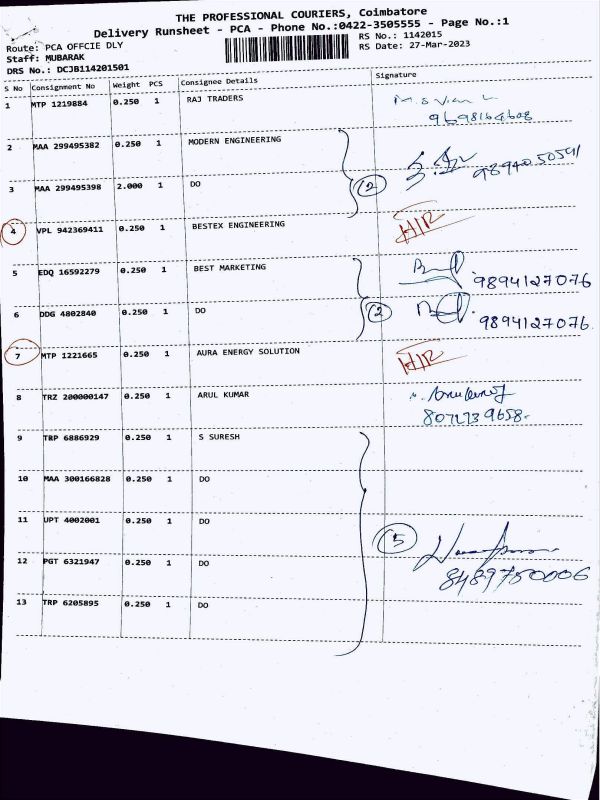 THE PROFESSIONAL COURIERS, Coimbatore
Delivery Runsheet - PCA - Phone No.:0422-3505555 - Page No.:1
Route: PCA OFFCIE DLY
RS No.: 1142015
Staff: MUBARAK
RS Date: 27-Mar-2023
DRS No.: DCJB114201501
S No Consignment No Weight PCS Consignee Details Signature
1 MTP 1219884 0.250 1 RAJ TRADERS
9698164608
2 MAA 299495382 0.250 1 MODERN ENGINEERING
3 MAA 299495398 2.000 1 DO (2) 9894050591
4 VPL 942369411 0.250 1 BESTEX ENGINEERING H/R
5 EDQ 16592279 0.250 1 BEST MARKETING 9894127076
6 DDG 4802840 0.250 1 DO (2) 9894127076
7 MTP 1221665 0.250 1 AURA ENERGY SOLUTION H/R
8 TRZ 200000147 0.250 1 ARUL KUMAR
9 TRP 6886929 0.250 1 S SURESH
10 MAA 300166828 0.250 1 DO
11 UPT 4002001 0.250 1 DO
(5)
12 PGT 6321947 0.250 1 DO
8489750006
13 TRP 6205895 0.250 1 DO